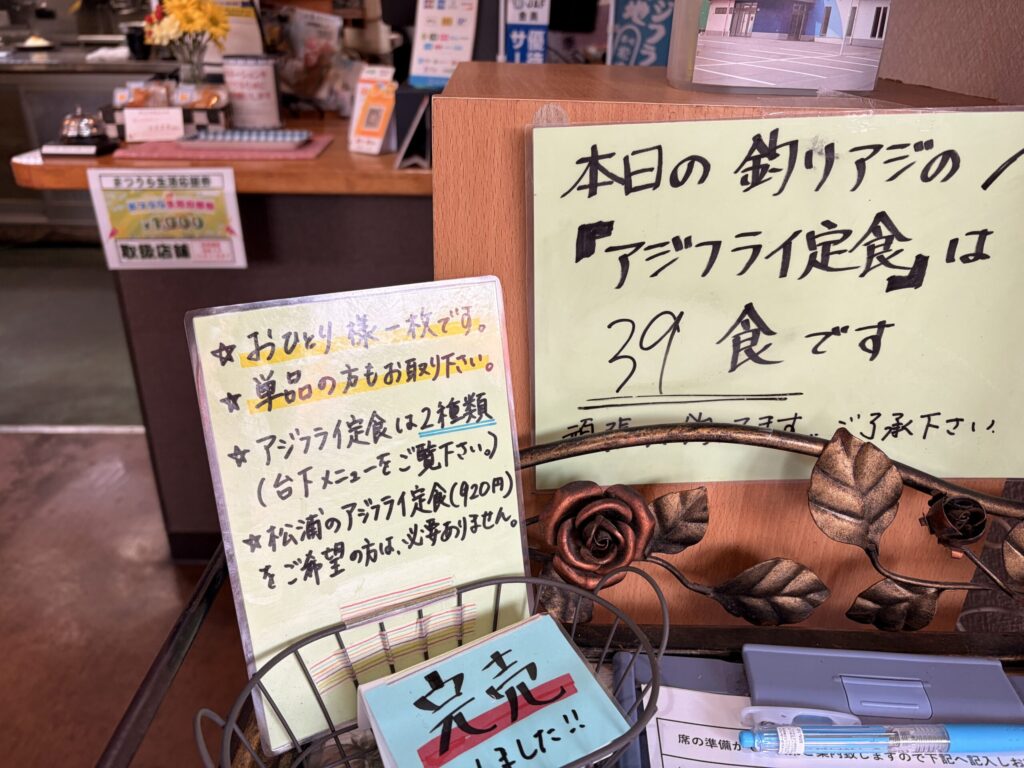 本日の 釣りアジの
『アジフライ定食』は
39 食です
ご了承下さい
☆ おひとり様一枚です。
☆ 単品の方もお取り下さい。
☆ アジフライ定食は2種類
(台下メニューをご覧下さい。)
☆ 松浦のアジフライ定食(920円)
をご希望の方は、必要ありません。
完売
しました!!
まつうら生活応援券
¥1,000
取扱店舗
アジフラ
席の準備が